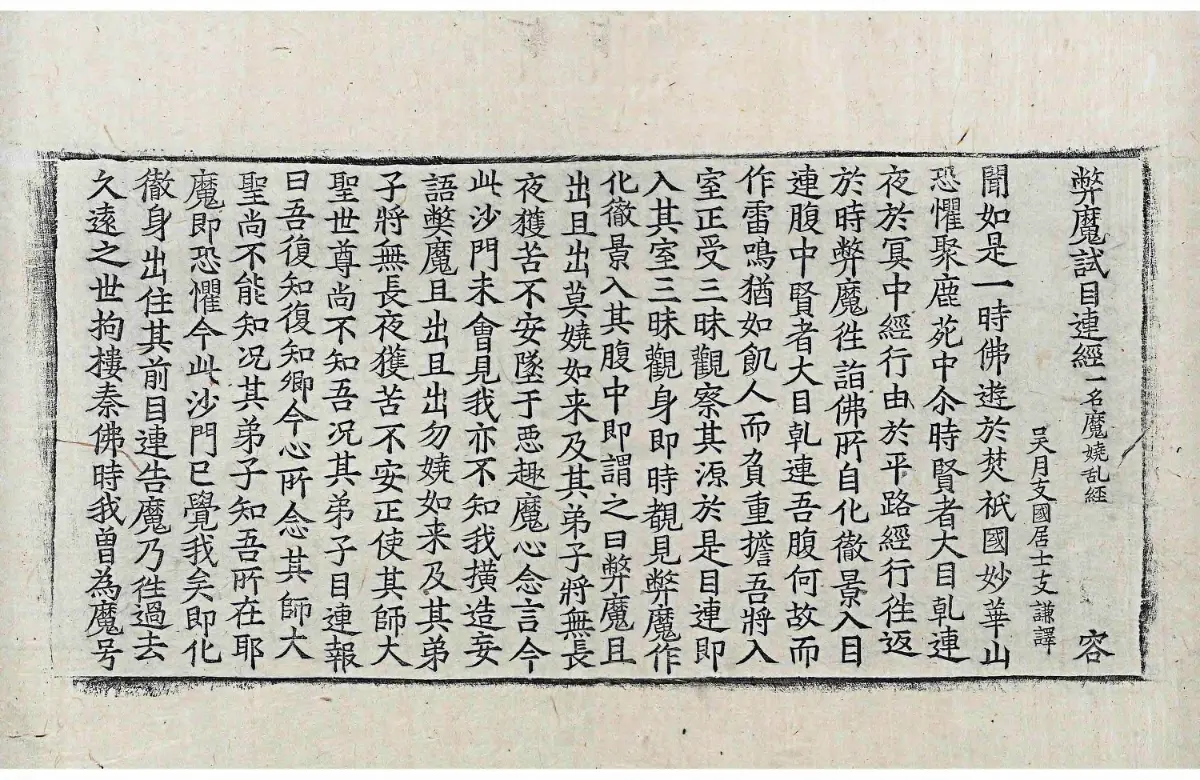 弊魔試目連經一名魔嬈乱經 容
吳月支國居士支謙譯
聞如是一時佛遊於焚祇國妙華山
恐懼聚鹿苑中尒時賢者大目乹連
夜於冥中經行由於平路經行徃返
於時弊魔徃詣佛所自化徹景入目
連腹中賢者大目乹連吾腹何故而
作雷鳴猶如飢人而負重擔吾將入
室正受三昧觀察其源於是目連即
入其室三昧觀身即時覩見弊魔作
化徹景入其腹中即謂之曰弊魔且
出且出莫嬈如来及其弟子將無長
夜獲苦不安墜于惡趣魔心念言今
此沙門未曾見我亦不知我撗造妄
語獘魔且出且出勿嬈如来及其弟
子將無長夜獲苦不安正使其師大
聖世尊尚不知吾况其弟子目連報
曰吾復知復知卿今心所念其師大
聖尚不能知况其弟子知吾所在耶
魔即恐懼今此沙門已覺我矣即化
徹身出住其前目連告魔乃徃過去
久遠之世拘樓秦佛時我曾為魔号